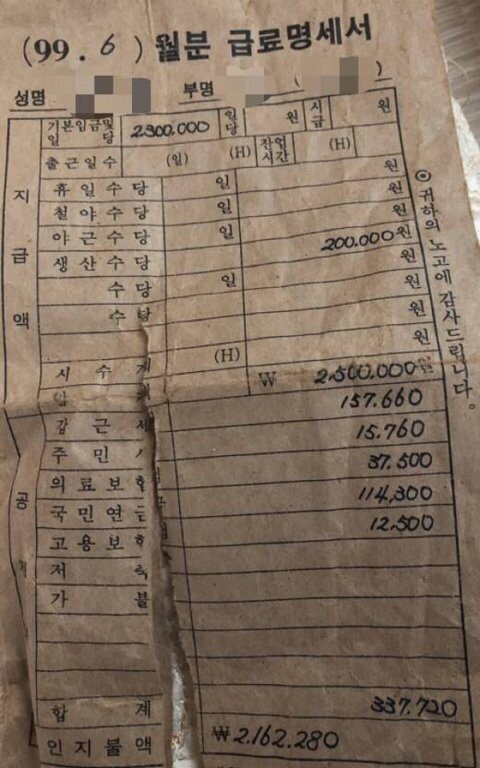 (99. 6) 월분 급료명세서
성명 부명 ( )
기본임금및 일당 2300.000 일당 원 시급 원
출근일수 (일) (H) 잔업시간 (H)
지급액
휴일수당 일 원
철야수당 일 원
야근수당 일 원
생산수당 200.000원
수당 일 원
수당 원
(H) 원
시수계
₩ 2,500,000원
157.660
갑근세 15.760
주민 37.500
의료보험 114,300
국민연금 12,500
고용보험
저축
가불
공
합계 337.720
인지불액 ₩2.162.280
◎ 귀하의 노고에 감사드립니다.